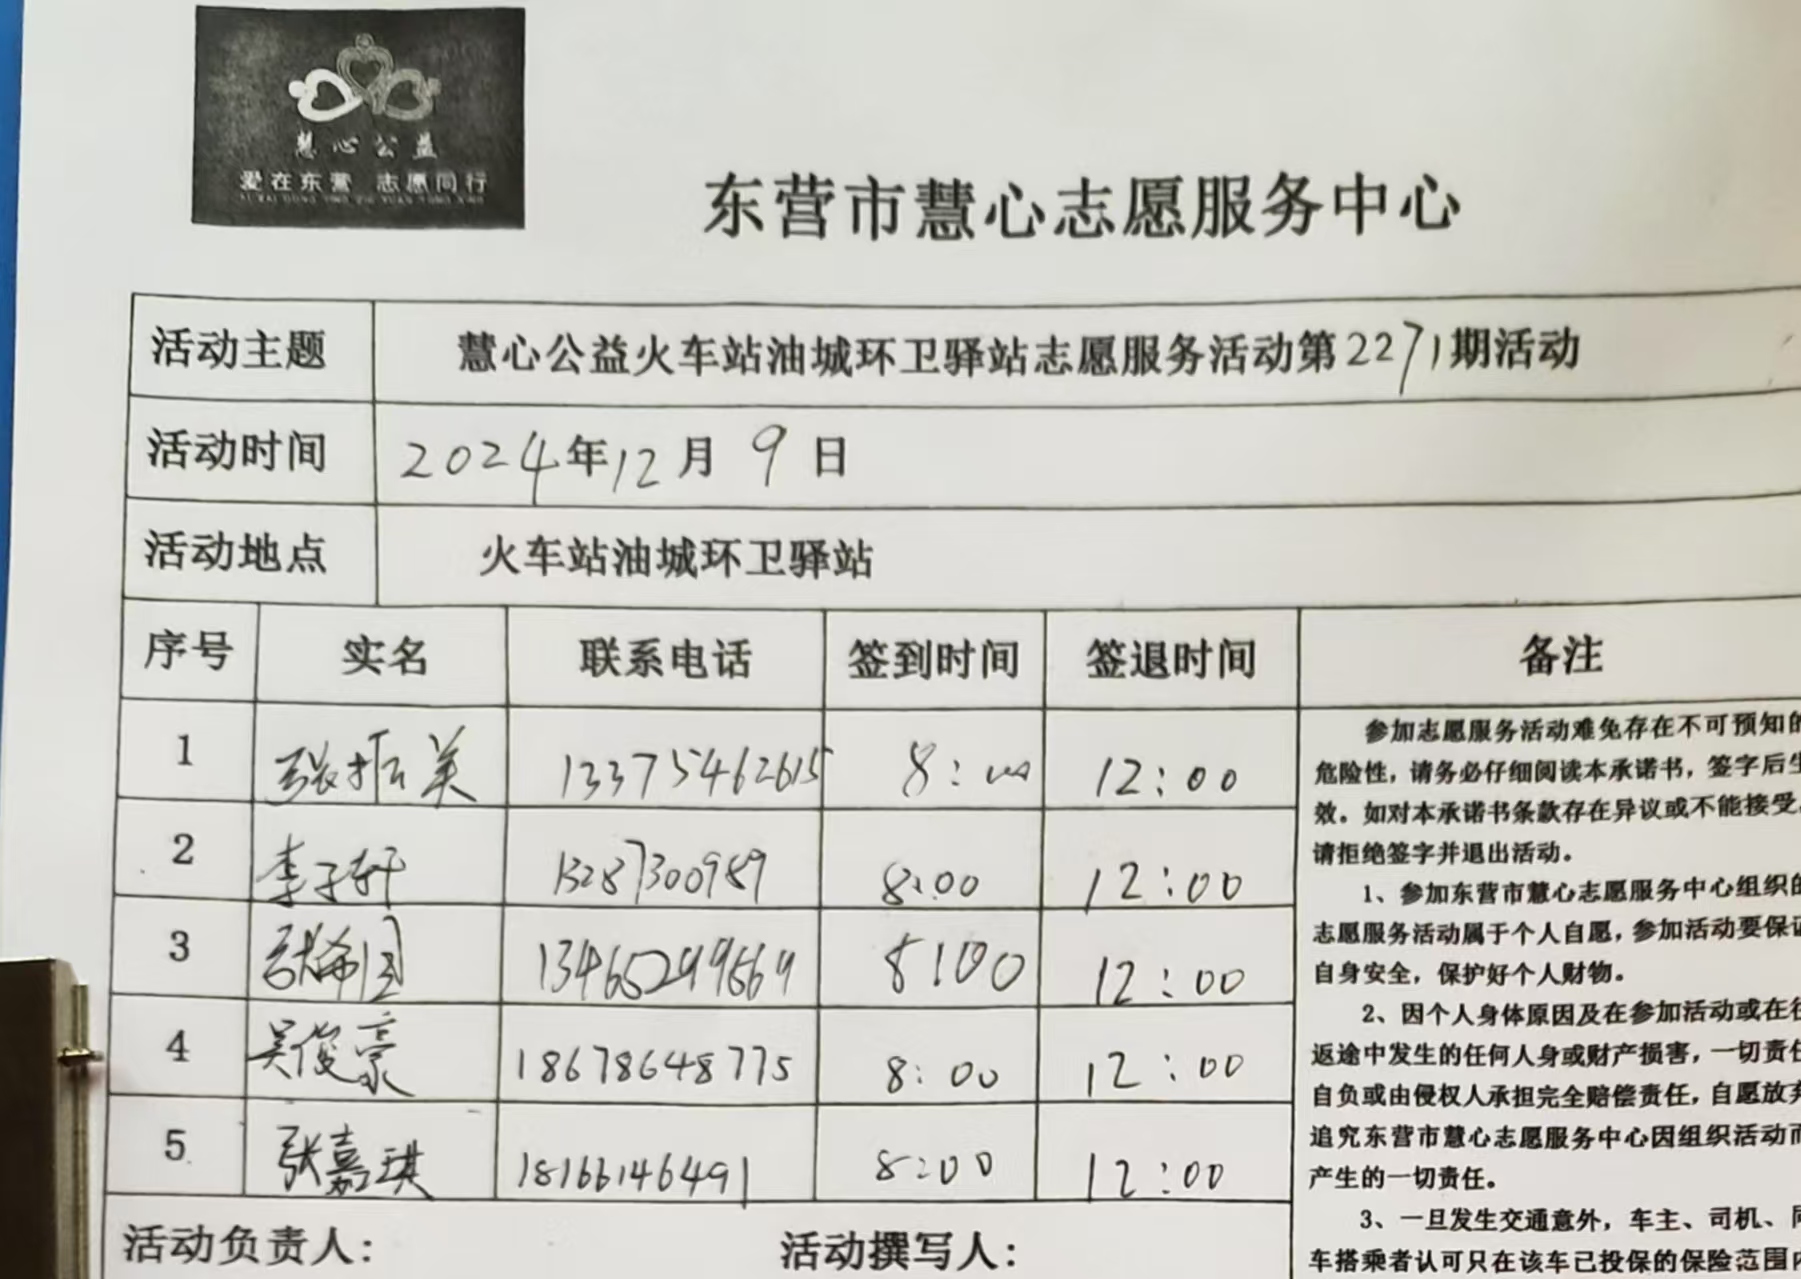 慧心公益
爱在东营 志愿同行
AI ZAI DONG YING ZHI YUAN TONG XING
东营市慧心志愿服务中心
活动主题 慧心公益火车站油城环卫驿站志愿服务活动第2271期活动
活动时间 2024年12月9日
活动地点 火车站油城环卫驿站
序号 实名 联系电话 签到时间 签退时间 备注
1 张振美 13375462615 8:00 12:00
2 李子轩 13287300989 8:00 12:00
3 张希国 13465299569 8:00 12:00
4 吴俊豪 18678648775 8:00 12:00
5 张嘉琪 18166146491 8:00 12:00
参加志愿服务活动难免存在不可预知的
危险性，请务必仔细阅读本承诺书，签字后生
效。如对本承诺书条款存在异议或不能接受，
请拒绝签字并退出活动。
1、参加东营市慧心志愿服务中心组织的
志愿服务活动属于个人自愿，参加活动要保证
自身安全，保护好个人财物。
2、因个人身体原因及在参加活动或在往
返途中发生的任何人身或财产损害，一切责任
自负或由侵权人承担完全赔偿责任，自愿放弃
追究东营市慧心志愿服务中心因组织活动而
产生的一切责任。
3、一旦发生交通意外，车主、司机、同
车搭乘者认可只在该车已投保的保险范围内
活动负责人： 活动撰写人：